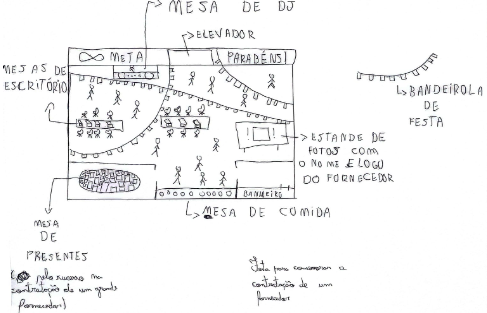 MESA DE DJ
ELEVADOR
∞ META
PARABÉNS!
MESAS DE
ESCRITÓRIO
BANDEIROLA
DE
FESTA
ESTANDE DE
FOTOS COM
O NOME E LOGO
DO FORNECEDOR
BANHEIRO
MESA DE COMIDA
MESA
DE
PRESENTES
pelo sucesso na
contratação de um grande
fornecedor)
Festa para comemorar a
contratação de um
fornecedor